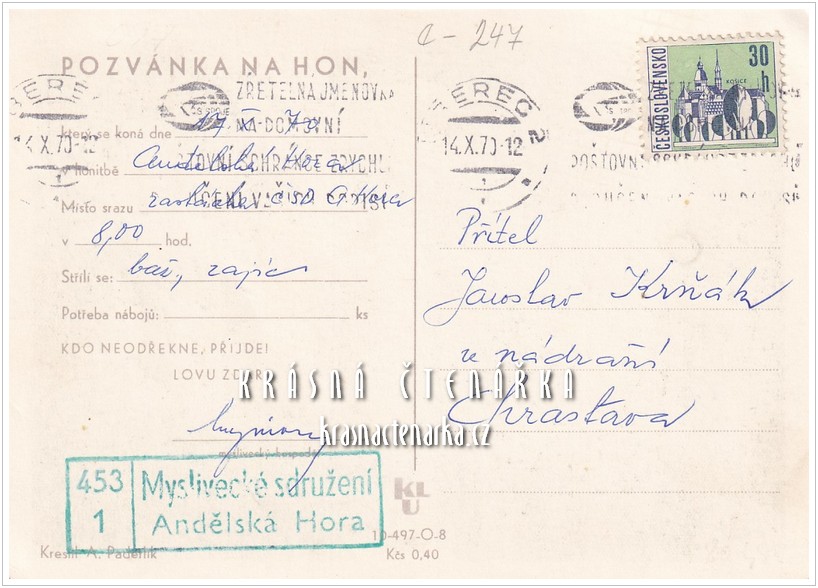 C - 247
POZVÁNKA NA HON,
ZŘETELNÁ JMENOVKA
NA DOMOVNÍ
který se koná dne 17. X. 70
v honitbě Andělská Hora
Místo srazu zastávka ČSD A. Hora
v 8,00 hod.
Střílí se: baž, zajíc
Potřeba nábojů: ks
KDO NEODŘEKNE, PŘIJDE!
LOVU ZDAR!
myslivecký hospodář
453
1
Myslivecké sdružení
Andělská Hora
Kreslil A. Paderlík
KLU
10-497-O-8
Kčs 0,40
14.X.70-12
LIBEREC 2
14.X.70-12
ČESKOSLOVENSKO
30 h
KOŠICE
POŠTOVNÍ
Přítel
Jaroslav Krňák
u nádraží
Chrastava
KRÁSNÁ ČTENÁŘKA
krasnactenarka.cz